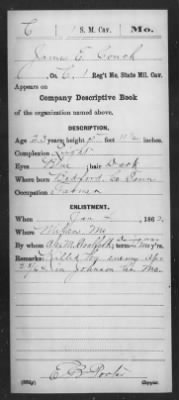 C 1 S. M. Cav. Mo.
James E. Couch
, Co. C, 1 Reg't Mo. State Mil. Cav.
Appears on
Company Descriptive Book
of the organization named above.
DESCRIPTION.
Age 23 years; height 5 feet 11 ½ inches.
Complexion Bright
Eyes Blue; hair Dark
Where born Bedford Co Tenn
Occupation Farmer
ENLISTMENT.
When Jan, 186
Where Milan, Mo
By whom; term y'rs.
Remarks: Killed by enemy Apr
in Johnson Co Mo.
E B Porter
Copyist.